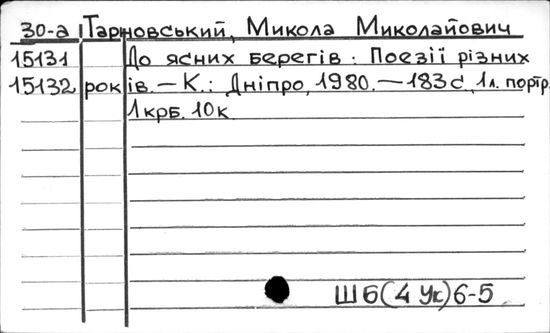 30-а Тарновський, Микола Миколайович
15131 До ясних берегів : Поезії різних
15132 років. — К.: Дніпро, 1980. — 183 с, 1л. портр.
1 крб. 10 к
Ш6(4 Ук)6-5